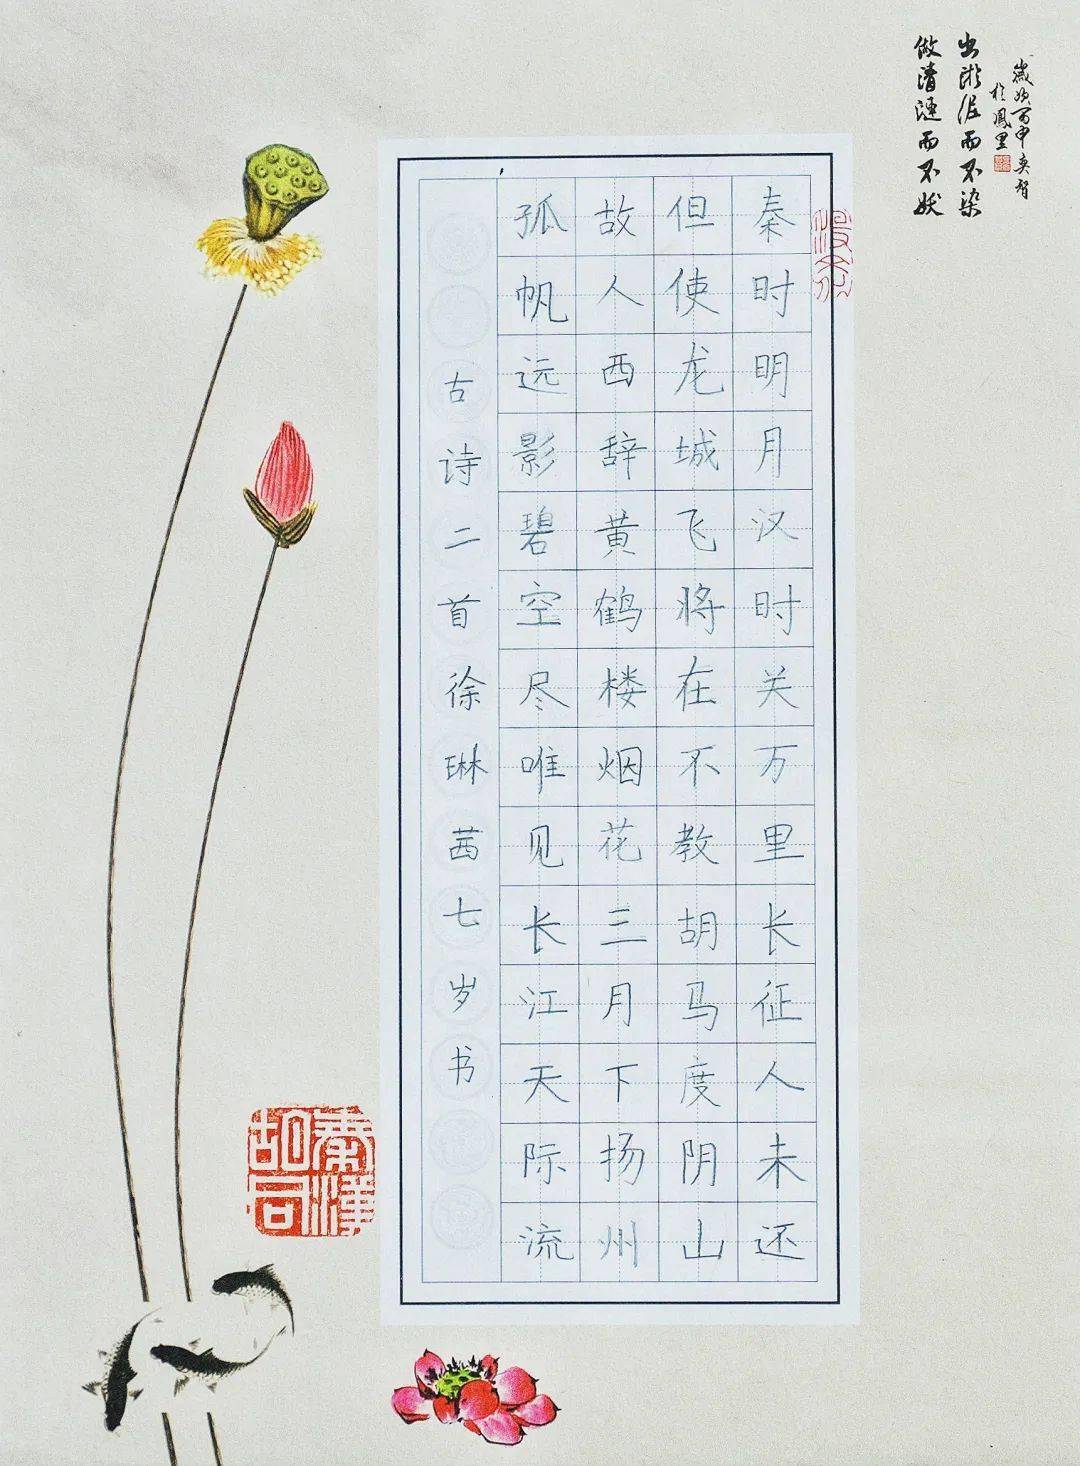 歲次丙申奕智
於鳳里
出淤泥而不染
做清漣而不妖
秦时明月汉时关万里长征人未还
但使龙城飞将在不教胡马度阴山
故人西辞黄鹤楼烟花三月下扬州
孤帆远影碧空尽唯见长江天际流
古诗二首徐琳茜七岁书
秦漢
胡同